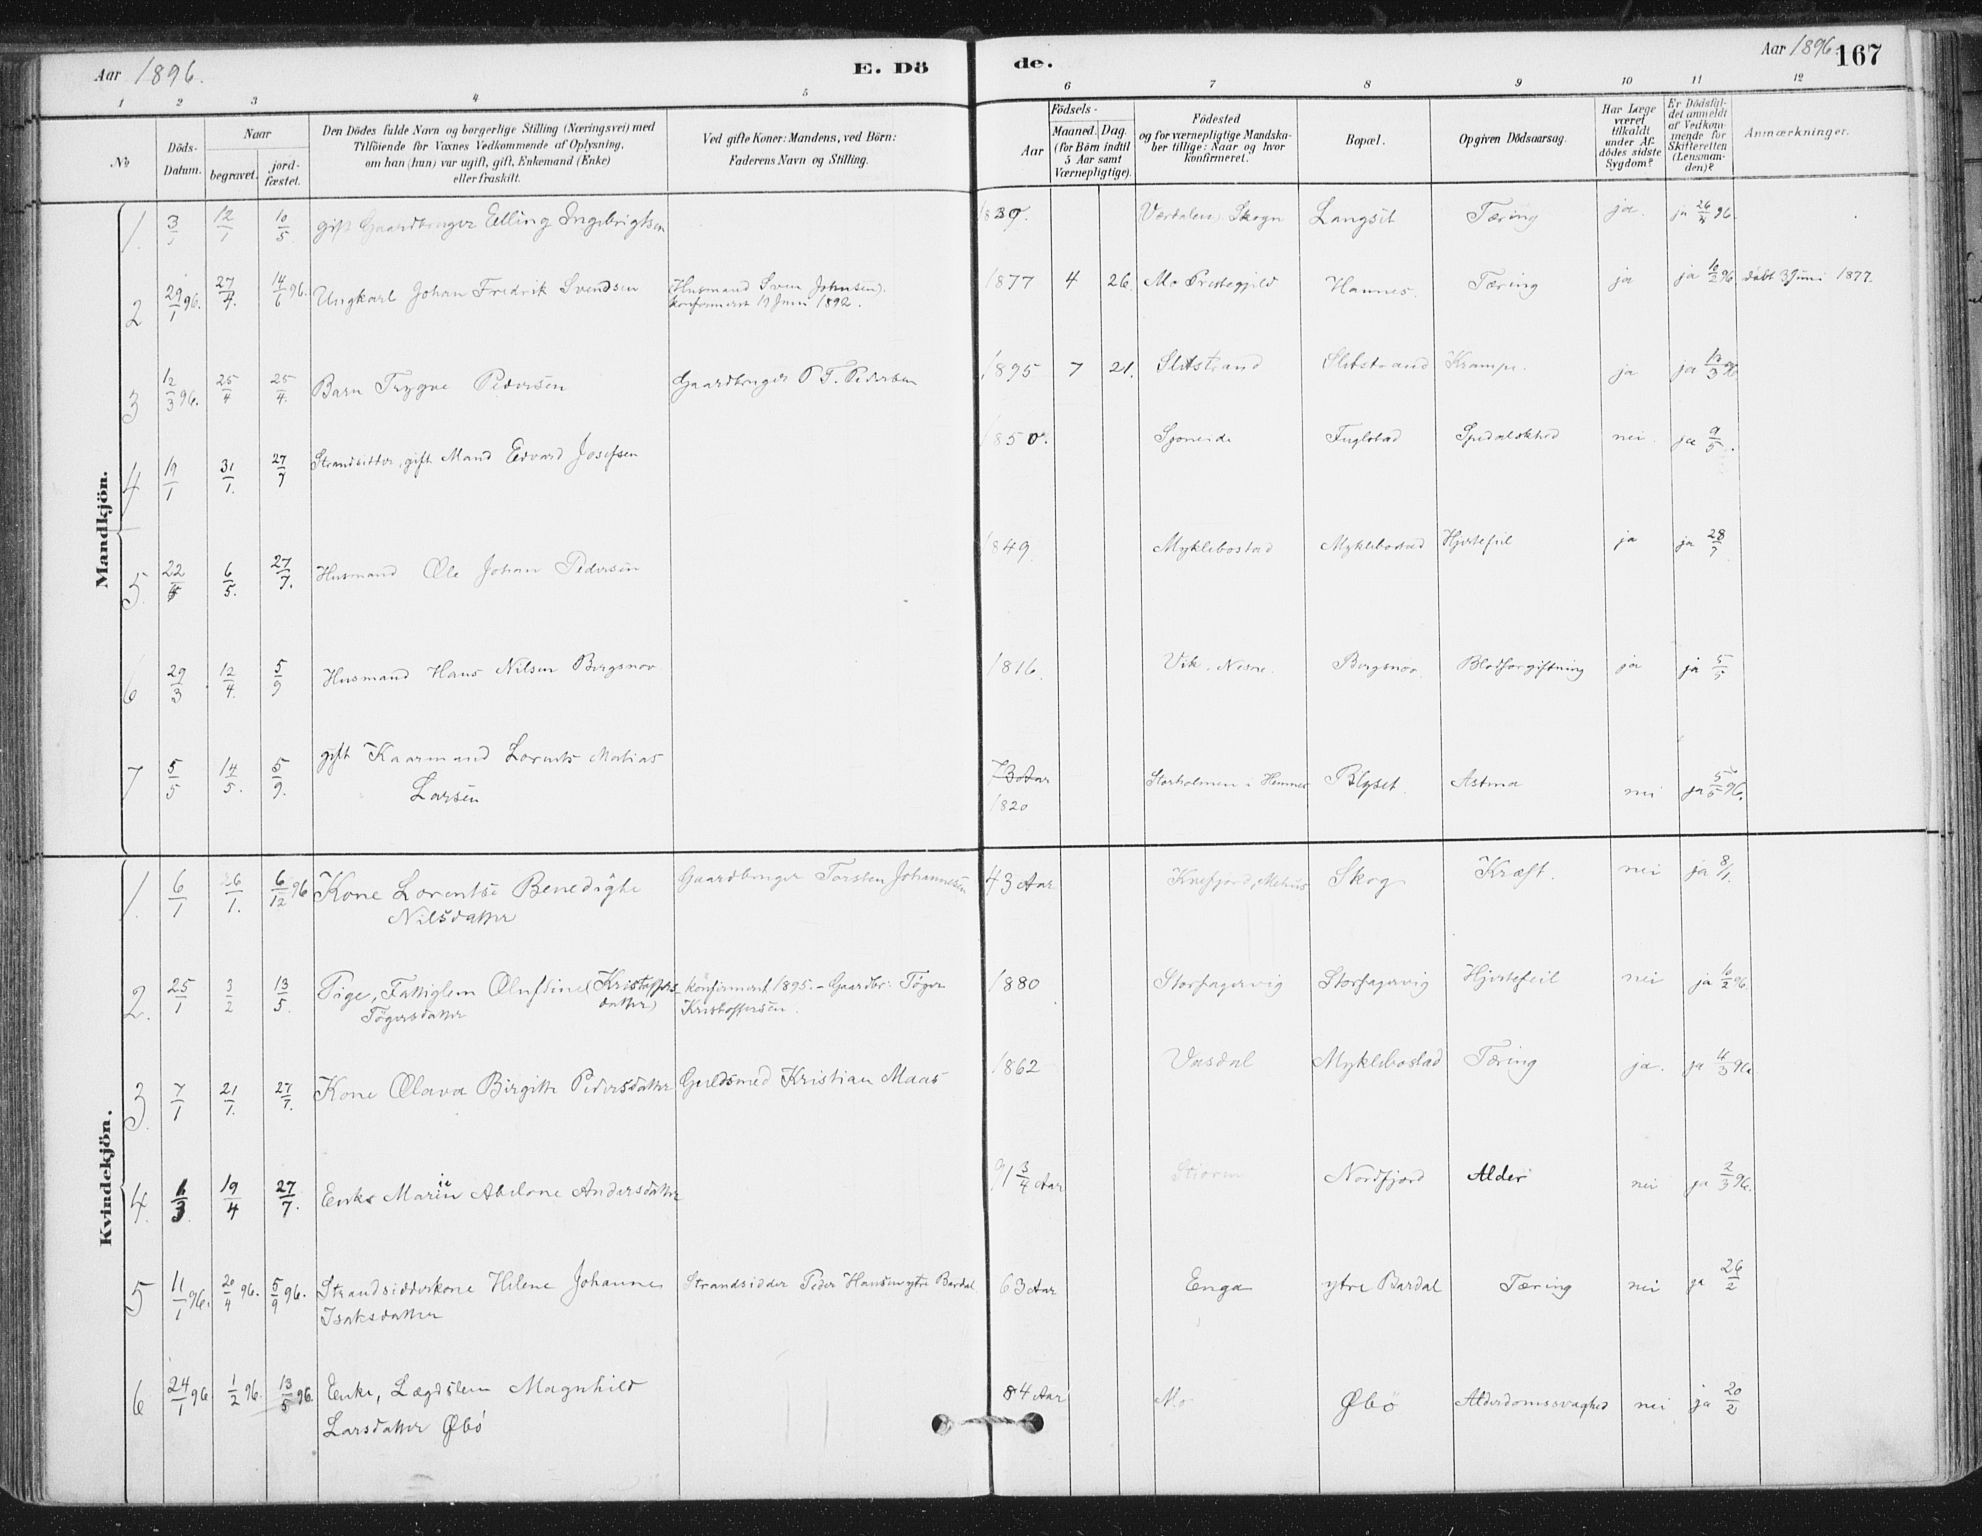 Aar 1896. E. Dö
de. Aar 1896 167
1 2 3 4 5 6 7 8 9 10 11 12
No
Döds-
Datum.
Naar
begravet.
jord-
fæstet.
Den Dödes fulde Navn og borgerlige Stilling (Næringsvei) med
Tilföiende for Voxnes Vedkommende af Oplysning,
om han (hun) var ugift, gift, Enkemand (Enke)
eller fraskilt.
Ved gifte Koner: Mandens, ved Börn:
Faderens Navn og Stilling.
Födsels-
Aar
Maaned. Dag.
(for Börn indtil
5 Aar samt
Værnepligtige).
Födested
og for værnepligtige Mandska-
ber tillige: Naar og hvor
konfirmeret.
Bopæl.
Opgiven Dödsaarsag.
Har Læge
været
tilkaldt
under Af-
dödes sidste
Sygdom?
Er Dödsfal-
det anmeldt
af Vedkom-
mende for
Skifteretten
(Lensman-
den)?
Anmærkninger.
Mandkjön.
1. 3/1 12/1 10/5 gift Gaardbruger Elling Ingebrigtsen 1839. Værdalen, Skogn Langset Tæring ja. ja 26/4 96.
2 29/1 96. 27/4. 14/6 96. Ungkarl Johan Fredrik Svendsen (Husmand Sven Johnsen). 1877 4 26. Mo Prestegjeld Hannes. Tæring ja ja 10/2 96 døbt 3 Juni 1877.
konfirmeret 19 Juni 1892.
3 12/3 96. 25/4 25/4. Barn Trygve Pedersen Gaardbruger P T. Pedersen 1895 7 21. Sletstrand Sletstrand Krampe. ja ja 13/3 96
4 19/1 31/1. 27/7 Strandsidder, gift Mand Edvard Josefsen 1850. Sjoneide Fuglstad Spedalskhed nei. ja 9/5.
5. 22/4 6/5. 27/7. Husmand Ole Johan Pedersen 1849. Myklebostad Myklebostad Hjertefeil ja ja 28/7
6 29/3 12/4. 5/9 Husmand Hans Nilsen Bergsnov 1816. Vik. Nesne. Bergsnov. Blodforgiftning ja ja 5/5
7 5/5 14/5. 5/9. gift Kaarmand Lorents Matias
Larsen
73 Aar
1820
Storholmen i Hemnes Blyset. Astma nei ja 5/5 96.
Kvindekjön.
1. 6/1 26/1. 6/12 96 Kone Lorentse Benedigte Gaardbruger Torsten Johannesen 43 Aar Skog Kræft. nei ja 8/1.
Nilsdatter
2. 25/1 3/2 13/5. Pige, Fattiglem Olufine (Kristoffers konfirmeret 1895. - Gaardbr: Tøger 1880 Storfagervig Storfagervig Hjertefeil nei ja 10/2 96.
Tøgersdatter datter) Kristoffersen.
3. 7/1 21/1. 27/7. Kone Olava Birgitte Pedersdatter Guldsmed Kristian Maas 1862 Vasdal Myklebostad Tæring ja. ja 4/3 96.
4. 1/3. 19/4 27/7. Enke Marie Abelone Andersdatter 91 3/4 Aar Nordfjord Alder nei ja 2/3 96.
5 11/1 96. 20/4 96. 5/9 96. Strandsidderkone Helene Johanne Strandsidder Peder Hansen ytre Bardal 63 Aar Enga ytre Bardal Tæring nei ja 26/2
Isaksdatter
6 24/1 96. 1/2 96. 13/5 96. Enke, Lægdslem Magnhild 84 Aar Mo Øbø Alderdomssvaghed nei ja 20/2
Larsdatter Øbø